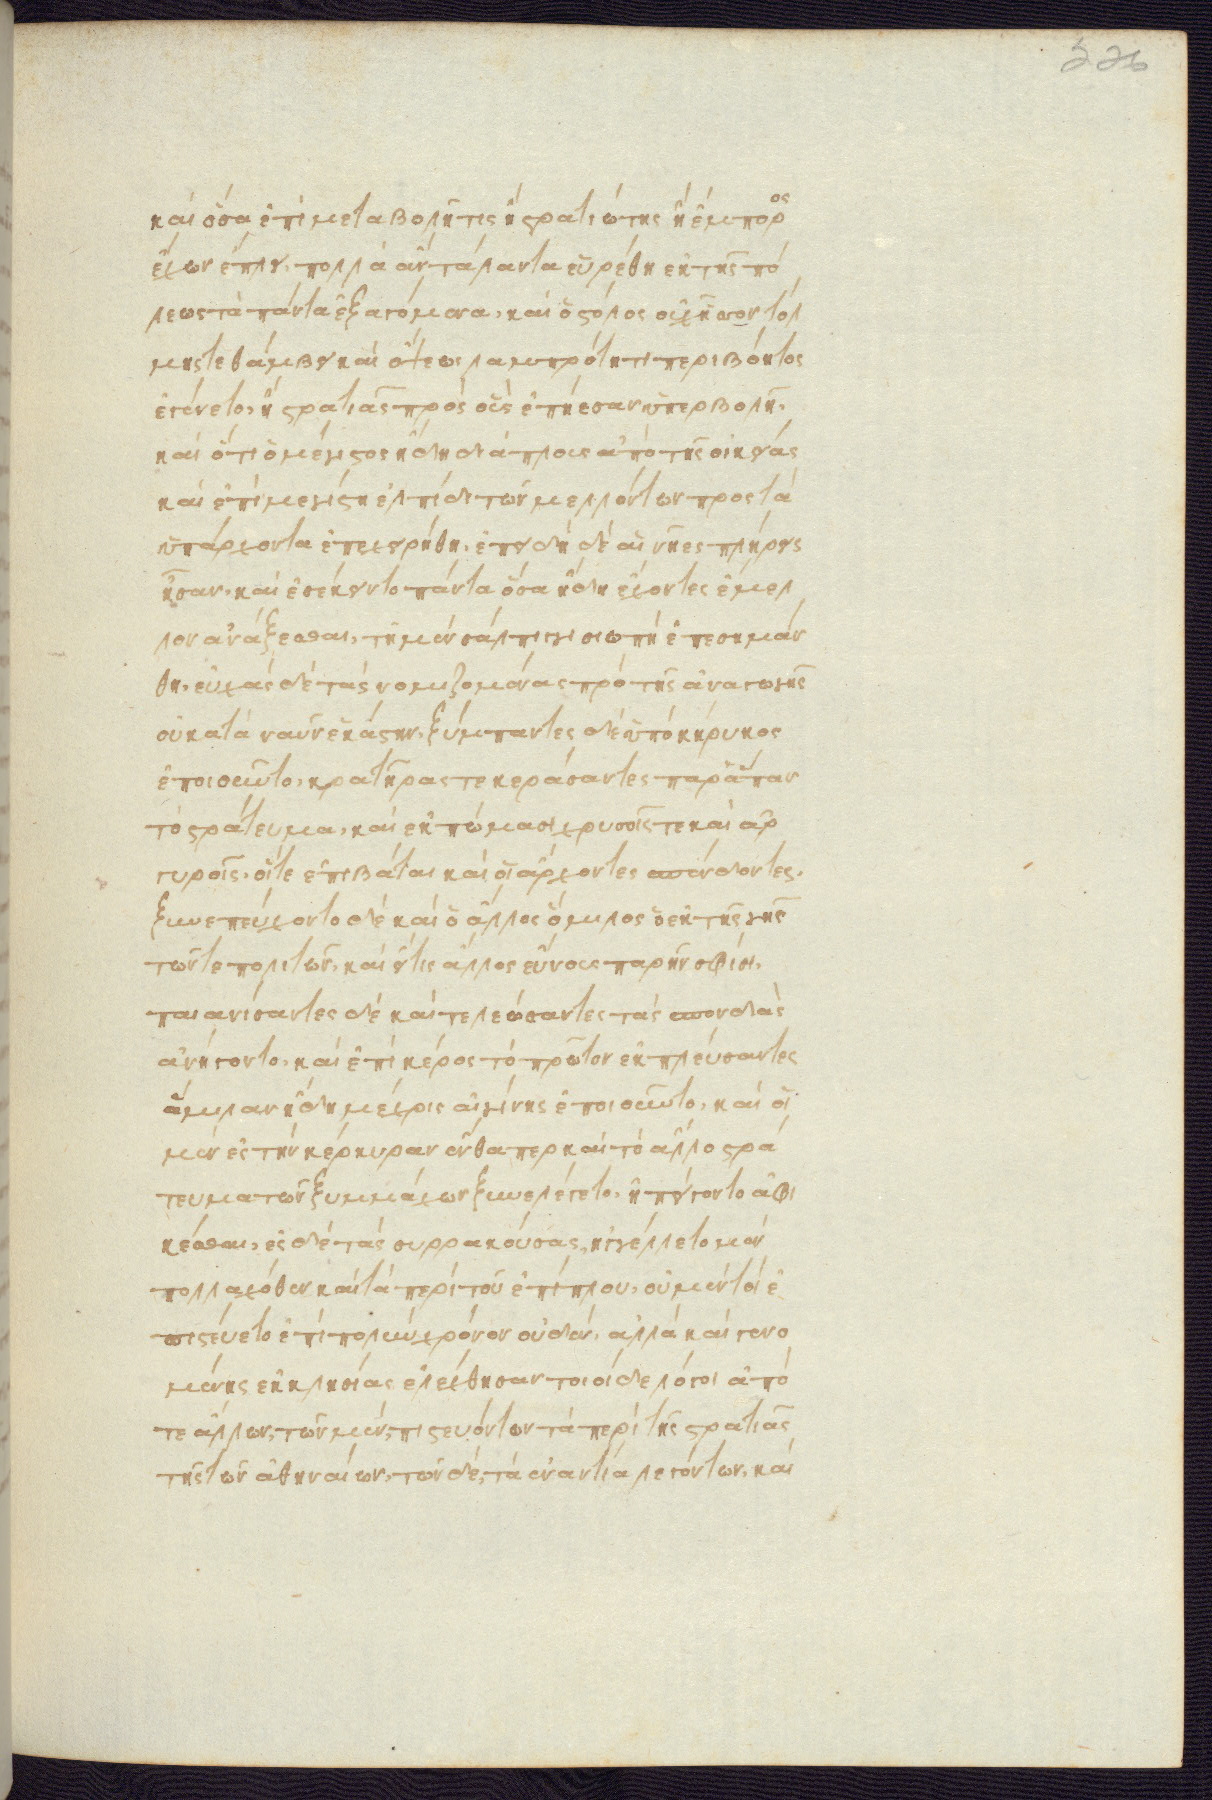 226
καὶ ὅσα ἐπὶ μεταβολῆ τις ἢ στρατιώτης ἢ ἔμπορος
ἔχων ἔπλει, πολλὰ ἂν τάλαντα εὑρέθη ἐκ τῆς πό
λεως τὰ πάντα ἐξαγόμενα, καὶ ὁ στόλος οὐχ ἧσσον τόλ
μης τε θάμβει καὶ ὄψεως λαμπρότητι περιβόητος
ἐγένετο, ἢ στρατιᾶς πρὸς οὓς ἐπήεσαν ὑπερβολῆ,
καὶ ὅτι ὁ μέγιστος ἤδη διάπλους ἀπὸ τῆς οἰκείας
καὶ ἐπὶ μεγίστη ἐλπίδι τῶν μελλόντων πρὸς τὰ
ὑπάρχοντα ἐπεχειρήθη, ἐπειδὴ δὲ αἱ νῆες πλήρεις
ἦσαν, καὶ ἐσέκειντο πάντα ὅσα ἤδη ἔχοντες ἔμελ
λον ἀνάξεσθαι, τῆ μὲν σάλπιγγι σιωπὴ ἐπεσημάν
θη, εὐχὰς δὲ τὰς νομιζομένας πρὸ τῆς ἀναγωγῆς
οὐ κατὰ ναῦν ἑκάστην, ξύμπαντες δὲ ὑπὸ κήρυκος
ἐποιοῦντο, κρατῆρας τε κεράσαντες παρ' ἅπαν
τὸ στράτευμα, καὶ ἐκπώμασι χρυσοῖς τε καὶ ἀρ
γυροῖς, οἵ τε ἐπιβάται καὶ οἱ ἄρχοντες σπένδοντες,
ξυνεπεύχοντο δὲ καὶ ὁ ἄλλος ὅμιλος ὁ ἐκ τῆς γῆς
τῶν τε πολιτῶν, καὶ εἴ τις ἄλλος εὔνους παρῆν σφίσι,
παιανίσαντες δὲ καὶ τελεώσαντες τὰς σπονδὰς
ἀνήγοντο, καὶ ἐπὶ κέρος τὸ πρῶτον ἐκπλεύσαντες
ἅμιλαν ἤδη μέχρις αἰγίνης ἐποιοῦντο, καὶ οἱ
μὲν ἐς τὴν κέρκυραν ἔνθα περ καὶ τὸ ἄλλο στρά
τευμα τῶν ξυμμάχων ξυνελέγετο, ἠπείγοντο ἀφι
κέσθαι, ἐς δὲ τὰς συρρακούσας, ἠγγέλλετο μὲν
πολλαχόθεν καὶ τὰ περὶ τοῦ ἐπίπλου, οὐ μέντοι ἐ
πιστεύετο ἐπὶ πολὺν χρόνον οὐδὲν, ἀλλὰ καὶ γενο
μένης ἐκκλησίας ἐλέχθησαν τοιοίδε λόγοι ἀπό
τε ἄλλων, τῶν μὲν, πιστευόντων τὰ περὶ τῆς στρατιᾶς
τῆς τῶν ἀθηναίων, τῶν δὲ, τὰ ἐναντία λεγόντων, καὶ